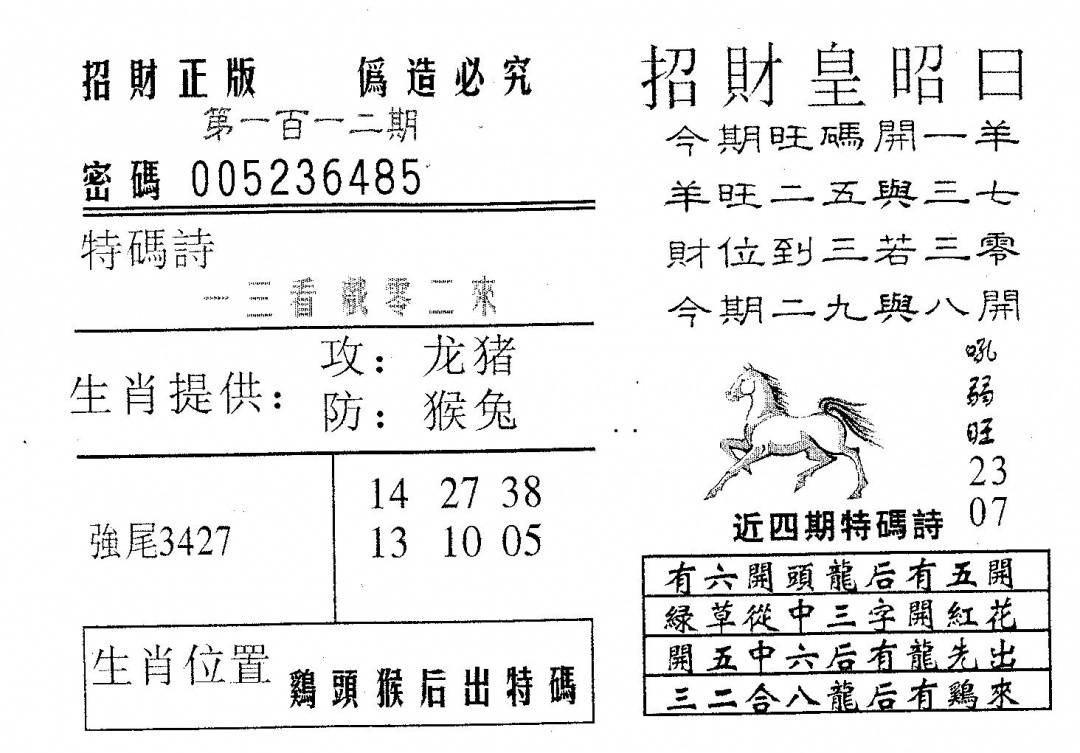 招財正版 僞造必究
第一百一二期
密碼 005236485
特碼詩
一三看戲零二來
生肖提供：
攻：龙猪
防：猴兔
強尾3427
14 27 38
13 10 05
生肖位置 鷄頭猴后出特碼
招財皇昭日
今期旺碼開一羊
羊旺二五與三七
財位到三若三零
今期二九與八開
吼
弱
旺
23
07
近四期特碼詩
有六開頭龍后有五開
緑草從中三字開紅花
開五中六后有龍先出
三二合八龍后有鷄來